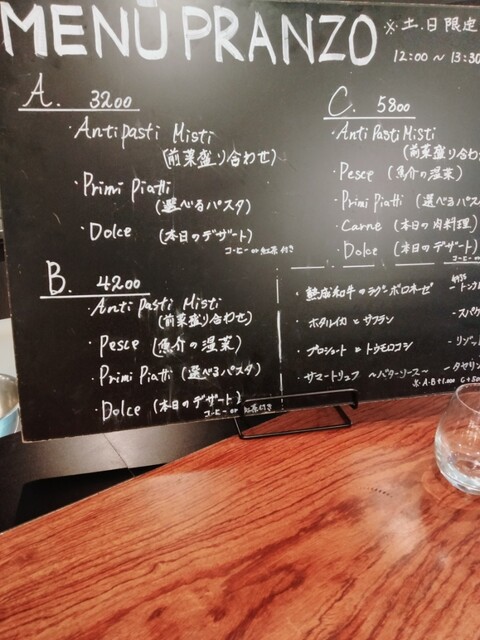 MENÙ PRANZO
※土.日限定
12:00 ~ 13:30
A. 3200
・Antipasti Misti
(前菜盛り合わせ)
・Primi Piatti
(選べるパスタ)
・Dolce (本日のデザート)
コーヒー or 紅茶付き
B. 4200
・Antipasti Misti
(前菜盛り合わせ)
・Pesce (魚介の温菜)
・Primi Piatti (選べるパスタ)
・Dolce (本日のデザート)
コーヒー or 紅茶付き
C. 5800
・Antipasti Misti
(前菜盛り合わ
・Pesce (魚介の温菜)
・Primi Piatti (選べるパス
・Carne (本日の肉料理)
・Dolce (本日のデザート)
コーヒー or
・熟成和牛のラグーボロネーゼ
・ホタルイカとサフラン -スパゲ
・プロシュートとトウモロコシ -リング
・サマートリュフ ~バターソース~ -タヤリン
※A・B+1.000 C+50